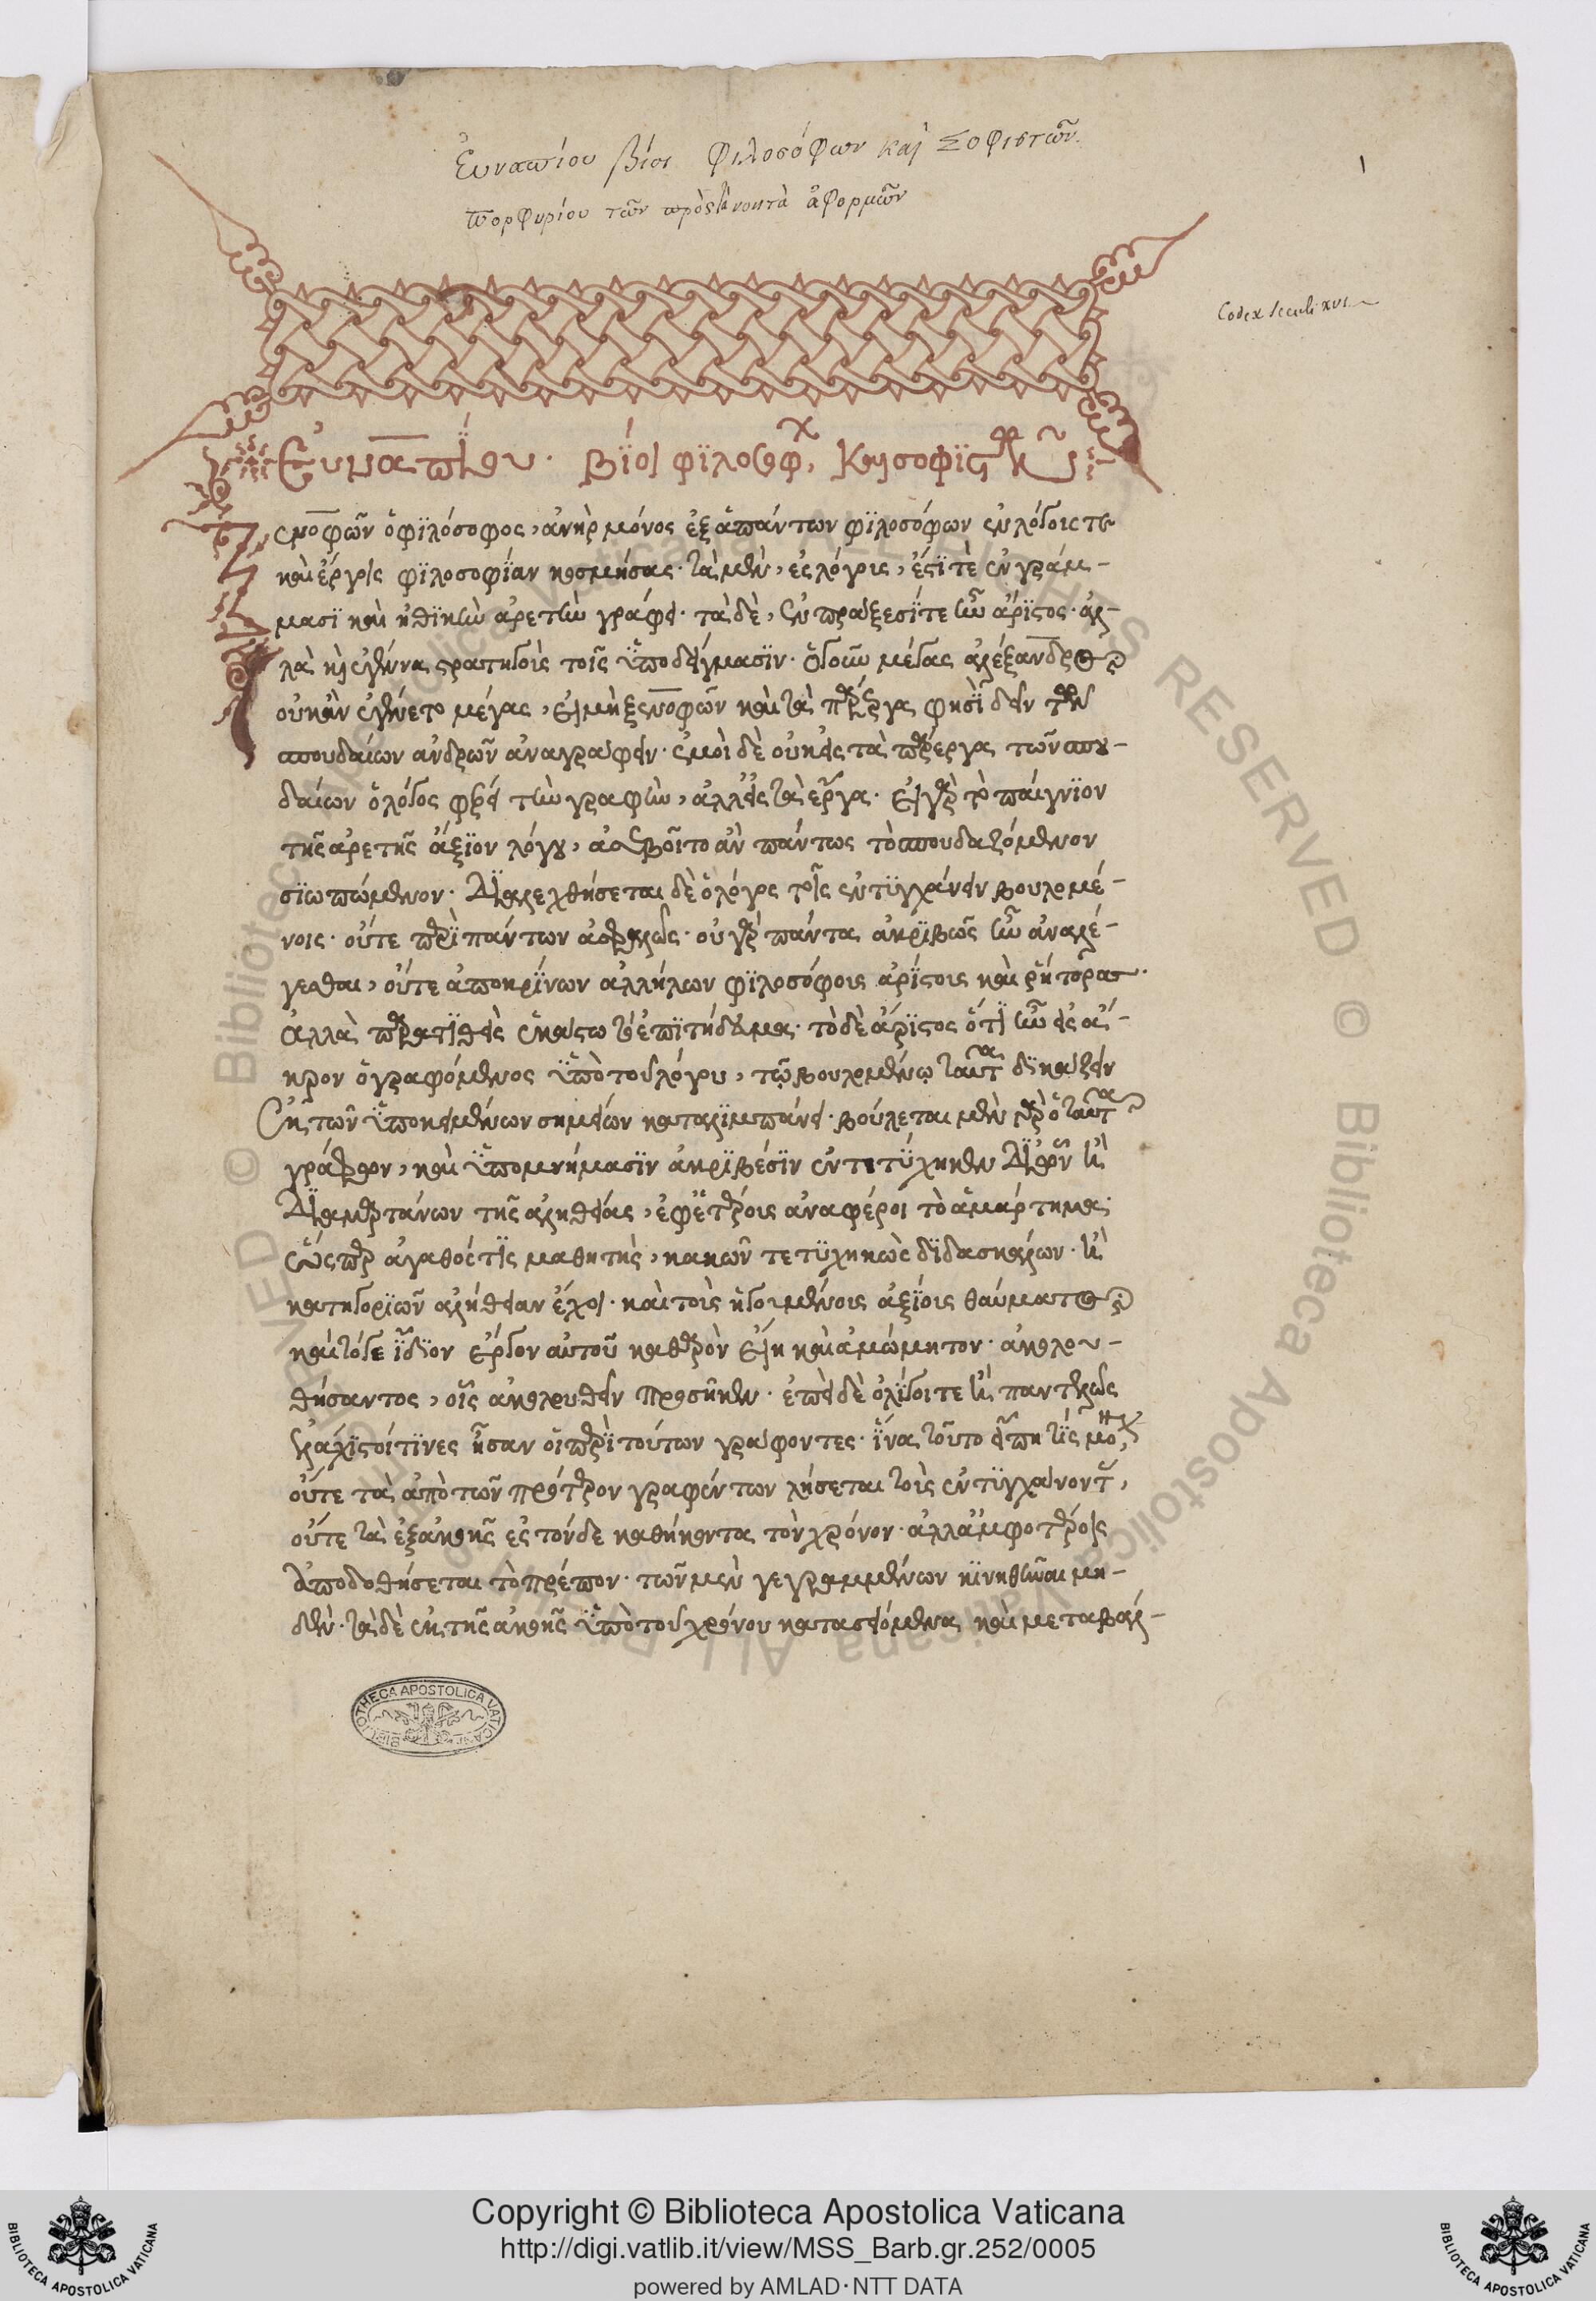 Ἐυναπίου βίοι φιλοσόφων καὶ Σοφιστῶν.
Πορφυρίου τῶν πρὸς τὰ νοητὰ ἀφορμῶν
1
Codex seculi XVI
Ἐυναπΐου· βΐοι φϊλοσόφ, καὶ σοφϊστῶν
Ξενοφῶν ὁ φϊλόσοφος, ἀνὴρ μόνος ἐξ ἁπάντων φϊλοσόφων ἐν λόγοις τε
καὶ ἔργοις φϊλοσοφΐαν κοσμήσας· τὰ μὲν, ἐς λόγοις, ἔστϊ τὲ ἐν γράμ-
μασϊ καὶ ἠθϊκὴν ἀρετὴν γράφει· τὰ δὲ, ἐν πράξεσΐ τε ἦν ἄρϊστος· ἀλ-
λὰ καὶ ἐγέννα στρατηγοὺς τοῖς ϋποδείγμασϊν· ὁ γοῦν μέγας ἀλέξανδρος
οὐκ ἂν ἐγένετο μέγας, εἰ μὴ ξενοφῶν καὶ τὰ πάρεργα φησὶ δεῖν τῶν
σπουδαίων ἀνδρῶν ἀναγράφειν· ἐμοὶ δὲ οὐκ εἰς τὰ πάρεργα τῶν σπου-
δαίων ὁ λόγος φέρει τὴν γραφὴν, ἀλλ' εἰς τὰ ἔργα· εἰ γὰρ τὸ παίγνϊον
τῆς ἀρετῆς ἄξϊον λόγου, ἀσεβοῖτο ἂν πάντως τὸ σπουδαζόμενον
σϊωπώμενον· Διαλεχθήσεται δὲ ὁ λόγος τοῖς ἐντϋγχάνειν βουλομέ-
νοις· οὔτε περὶ πάντων ἀσφαλῶς· οὐ γὰρ πάντα ἀκρϊβῶς ἦν ἀναλέ-
γεσθαι, οὔτε ἀποκρΐνων ἀλλήλων φϊλοσόφοις ἀρΐστοις καὶ ῥήτορας·
ἀλλὰ παρατϊθεὶς ἑκάστω τὸ ἐπϊτήδευμα· τὸ δὲ ἄρϊστος ὅτϊ ἦν εἰς ἄ-
κρον ὁ γραφόμενος ϋπὸ τοῦ λόγου, τῷ βουλομένῳ ταῦτα δϊκάζειν
ἐκ τῶν ϋποκειμένων σημείων καταλϊμπάνει· βούλεται μὲν γὰρ ὁ ταῦτα
γράφων, καὶ ϋπομνήμασϊν ἀκρϊβέσϊν ἐντετΰχηκεν Διαφορῶν καὶ
Διαμαρτάνων τῆς ἀληθείας, ἐφ' ἑτέρους ἀναφέροι τὸ ἁμάρτημα·
ὥσπερ ἀγαθός τϊς μαθητὴς, κακῶν τετϋχηκὼς δϊδασκάλων· καὶ
κατηγορϊῶν ἀλήθειαν ἔχοι· καὶ τοὺς ἡγουμένους ἀξΐοις θαύματος
καὶ τό γε ΐδϊον ἔργον αὐτοῦ καθαρὸν εἴη καὶ ἀμώμητον· ἀκολου-
θήσαντος, οἷς ἀκολουθεῖν προσῆκεν· ἐπεὶ δὲ ὀλΐγοι τε καὶ παντελῶς
ἐλάχϊστοί τϊνες ἦσαν οἱ περὶ τούτων γράφοντες· ΐνα τοῦτο εἴπῃ τϊς μό,
οὔτε τὰ ἀπὸ τῶν πρότερον γραφέντων λήσεται τοὺς ἐντϋγχάνοντας,
οὔτε τὰ ἐξ ἀκοῆς ἐς τόνδε καθήκοντα τὸν χρόνον· ἀλλ' ἀμφοτέροις
ἀποδοθήσεται τὸ πρέπον· τῶν μὲν γεγραμμένων κϊνηθῆναι μη-
δέν· τὰ δὲ ἐκ τῆς ἀκοῆς ϋπὸ τοῦ χρόνου κατασειόμενα καὶ μεταβάλ-
BIBLIOTHECA APOSTOLICA VATICANA
Copyright © Biblioteca Apostolica Vaticana
http://digi.vatlib.it/view/MSS_Barb.gr.252/0005
powered by AMLAD·NTT DATA
BIBLIOTECA APOSTOLICA VATICANA
BIBLIOTECA APOSTOLICA VATICANA